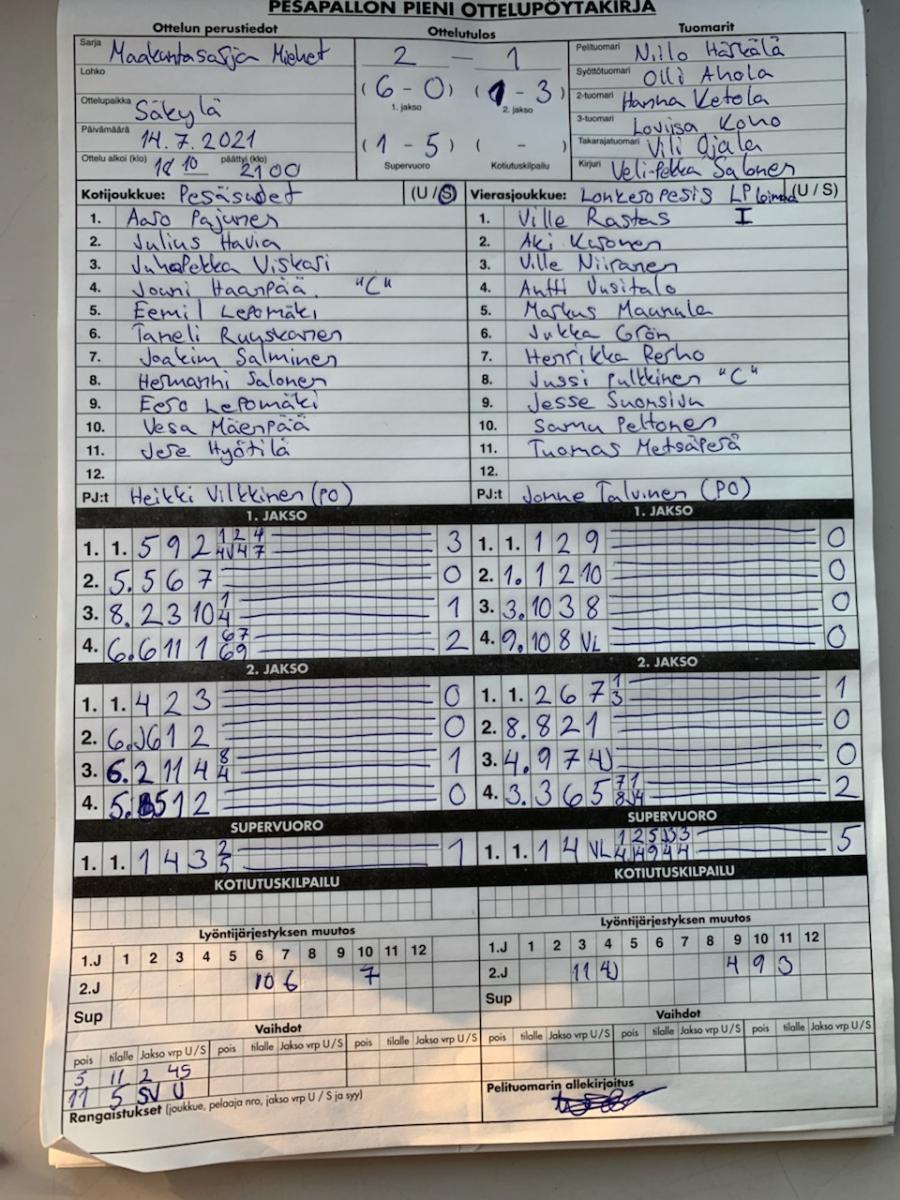 PESÄPALLON PIENI OTTELUPÖYTÄKIRJA
Ottelun perustiedot Ottelutulos Tuomarit
Sarja Maakuntasarja Miehet
Lohko
Ottelupaikka Säkylä
Päivämäärä 14.7.2021
Ottelu alkoi (klo) 18 10 päättyi (klo) 21 00
2 — 1
(6 - 0) (1 - 3)
1. jakso 2. jakso
(1 - 5) ( - )
Supervuoro Kotiutuskilpailu
Pelituomari Niilo Härkälä
Syöttötuomari Olli Ahola
2-tuomari Hanna Ketola
3-tuomari Loviisa Koho
Takarajatuomari Vili Ojala
Kirjuri Veli-Pekka Salonen
Kotijoukkue: Pesäsudet (U / S)
1. Aaro Pajunen
2. Julius Havia
3. Juhapekka Viskari
4. Jouni Haanpää "C"
5. Eemil Lepomäki
6. Taneli Ruuskanen
7. Joakim Salminen
8. Hermanni Salonen
9. Eero Lepomäki
10. Vesa Mäenpää
11. Jere Hyötilä
12.
PJ:t Heikki Vilkkinen (PO)
Vierasjoukkue: Lonkeropesis LP Loimaa (U / S)
1. Ville Rastas I
2. Aki Kuronen
3. Ville Niiranen
4. Antti Uusitalo
5. Markus Maunula
6. Jukka Grön
7. Henrikka Perho
8. Jussi Pulkkinen "C"
9. Jesse Suonsivu
10. Samu Peltonen
11. Tuomas Metsäperä
12.
PJ:t Janne Talvinen (PO)
1. JAKSO 1. JAKSO
1. 1. 5 9 2 1 2 4 3
4 V 4 7
2. 5. 5 6 7 0
3. 8. 2 3 10 1 4 1
4. 6. 6 11 1 67 69 2
1. 1. 1 2 9 0
2. 1. 1 2 10 0
3. 3. 10 3 8 0
4. 9. 10 8 VL 0
2. JAKSO 2. JAKSO
1. 1. 4 2 3 0
2. 6. J 6 1 2 0
3. 6. 2 11 4 8 4 1
4. 5. 5 1 2 0
1. 1. 2 6 7 1 3 1
2. 8. 8 2 1 0
3. 4. 9 7 4 J 0
4. 3. 3 6 5 7 1 2
SUPERVUORO SUPERVUORO
1. 1. 1 4 3 2 5 1
1. 1. 1 4 VL 5
KOTIUTUSKILPAILU KOTIUTUSKILPAILU
Lyöntijärjestyksen muutos Lyöntijärjestyksen muutos
1.J 1 2 3 4 5 6 7 8 9 10 11 12
2.J 10 6 7
Sup
1.J 1 2 3 4 5 6 7 8 9 10 11 12
2.J 11 4J 4 9 3
Sup
Vaihdot Vaihdot
pois tilalle Jakso vrp U / S pois tilalle Jakso vrp U / S pois tilalle Jakso vrp U / S
5 11 2 4S
11 5 SV U
pois tilalle Jakso vrp U / S pois tilalle Jakso vrp U / S pois tilalle Jakso vrp U / S
Rangaistukset (joukkue, pelaaja nro, jakso vrp U / S ja syy)
Pelituomarin allekirjoitus